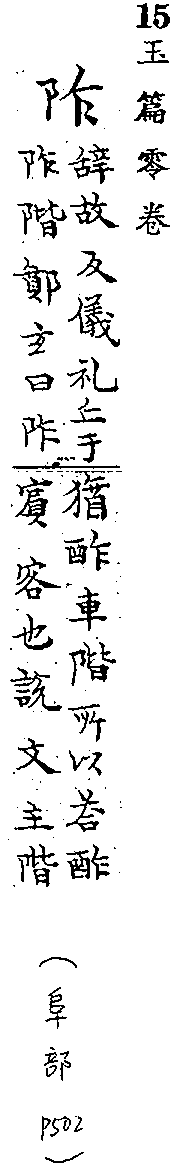 15玉篇零卷
阼
辞故反儀礼立于
阼階鄭玄曰阼
猶酢車階所以荅酢
賓客也說文主階
(阜部 P502)